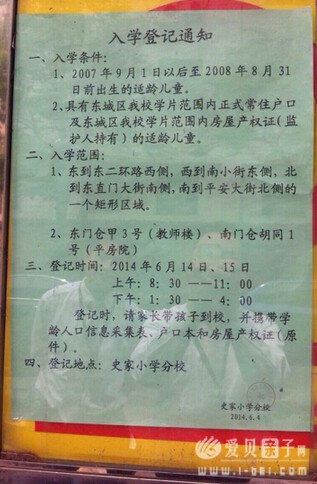 入学登记通知
一、入学条件：
1、2007年9月1日以后至2008年8月31
日前出生的适龄儿童。
2、具有东城区我校学片范围内正式常住户口
及东城区我校学片范围内房屋产权证（监
护人持有）的适龄儿童。
二、入学范围：
1、东到东二环路西侧，西到南小街东侧，北
到东直门大街南侧，南到平安大街北侧的
一个矩形区域。
2、东门仓甲3号（教师楼）、南门仓胡同1
号（平房院）
三、登记时间：2014年6月14日、15日
上午：8：30——11：00
下午：1：30——4：00
登记时，请家长带孩子到校，并携带学
龄人口信息采集表、户口本和房屋产权证（原
件）。
四、登记地点：史家小学分校
史家小学分校
2014.6.4
爱贝亲子网
www.i-bei.com